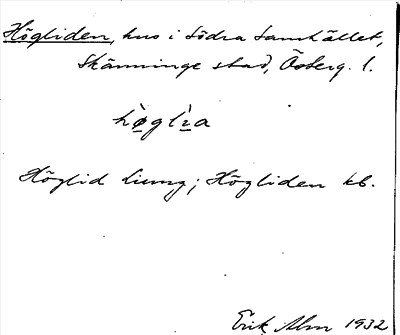 Högliden, hus i Södra Samhället,
Skänninge stad, Österg. l.
hø̀glìa
Höglid Liung; Högliden kb.
Erik Alm 1932